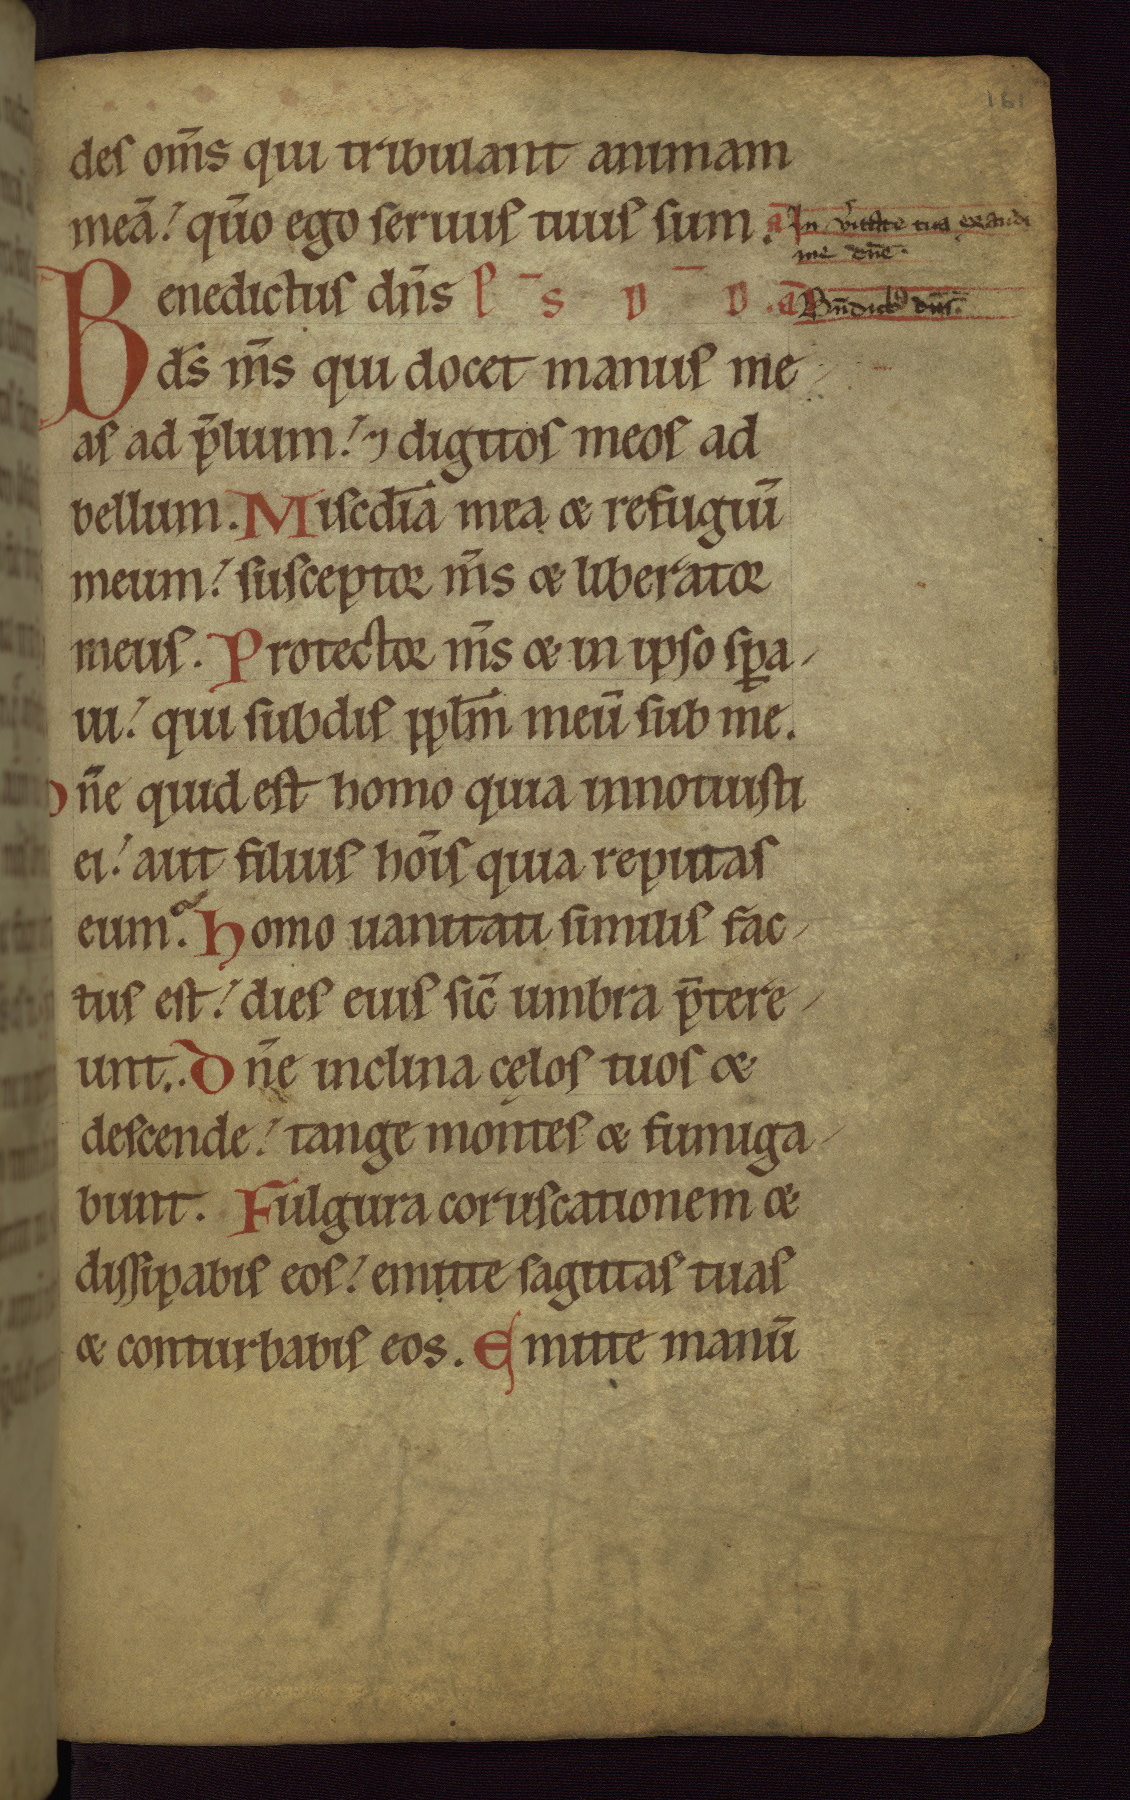 161
des om̄s qui tribulant animam
meā! qūo ego seruus tuus sum.
a In ūitate tua exaudi
me dn̄e.
Benedictus dn̄s p̄ s D D.
a Bn̄dictus dn̄s.
ds̄ m̄s qui docet manus me-
as ad p̄lium! ⁊ digitos meos ad
bellum. Miscdīa mea & refugiū
meum! susceptor m̄s & liberator
meus. Protector m̄s & in ipso spa-
ui! qui subdis pplm̄ meū sub me.
Dn̄e quid est homo quia innotuisti
ei! aut filius hōis quia reputas
eum. Homo uanitati similis fac-
tus est! dies eius sic̄ umbra p̄tere-
unt. Dn̄e inclina cęlos tuos &
descende! tange montes & fumiga-
bunt. Fulgura coruscationem &
dissipabis eos! emitte sagittas tuas
& conturbabis eos. Emitte manū